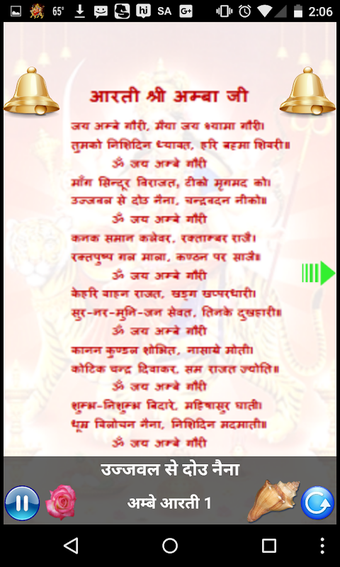 65°
SA
2:06
आरती श्री अम्बा जी
जय अम्बे गौरी, मैया जय श्यामा गौरी।
तुमको निशिदिन ध्यावत, हरि ब्रह्मा शिवरी॥
ॐ जय अम्बे गौरी
माँग सिन्दूर विराजत, टीको मृगमद को।
उज्जवल से दोउ नैना, चन्द्रवदन नीको॥
ॐ जय अम्बे गौरी
कनक समान कलेवर, रक्ताम्बर राजै।
रक्तपुष्प गल माला, कण्ठन पर साजै॥
ॐ जय अम्बे गौरी
केहरि वाहन राजत, खड्ग खप्परधारी।
सुर-नर-मुनि-जन सेवत, तिनके दुखहारी॥
ॐ जय अम्बे गौरी
कानन कुण्डल शोभित, नासाग्रे मोती।
कोटिक चन्द्र दिवाकर, सम राजत ज्योति॥
ॐ जय अम्बे गौरी
शुम्भ-निशुम्भ बिदारे, महिषासुर घाती।
धूम्र विलोचन नैना, निशिदिन मदमाती॥
ॐ जय अम्बे गौरी
उज्जवल से दोउ नैना
अम्बे आरती 1